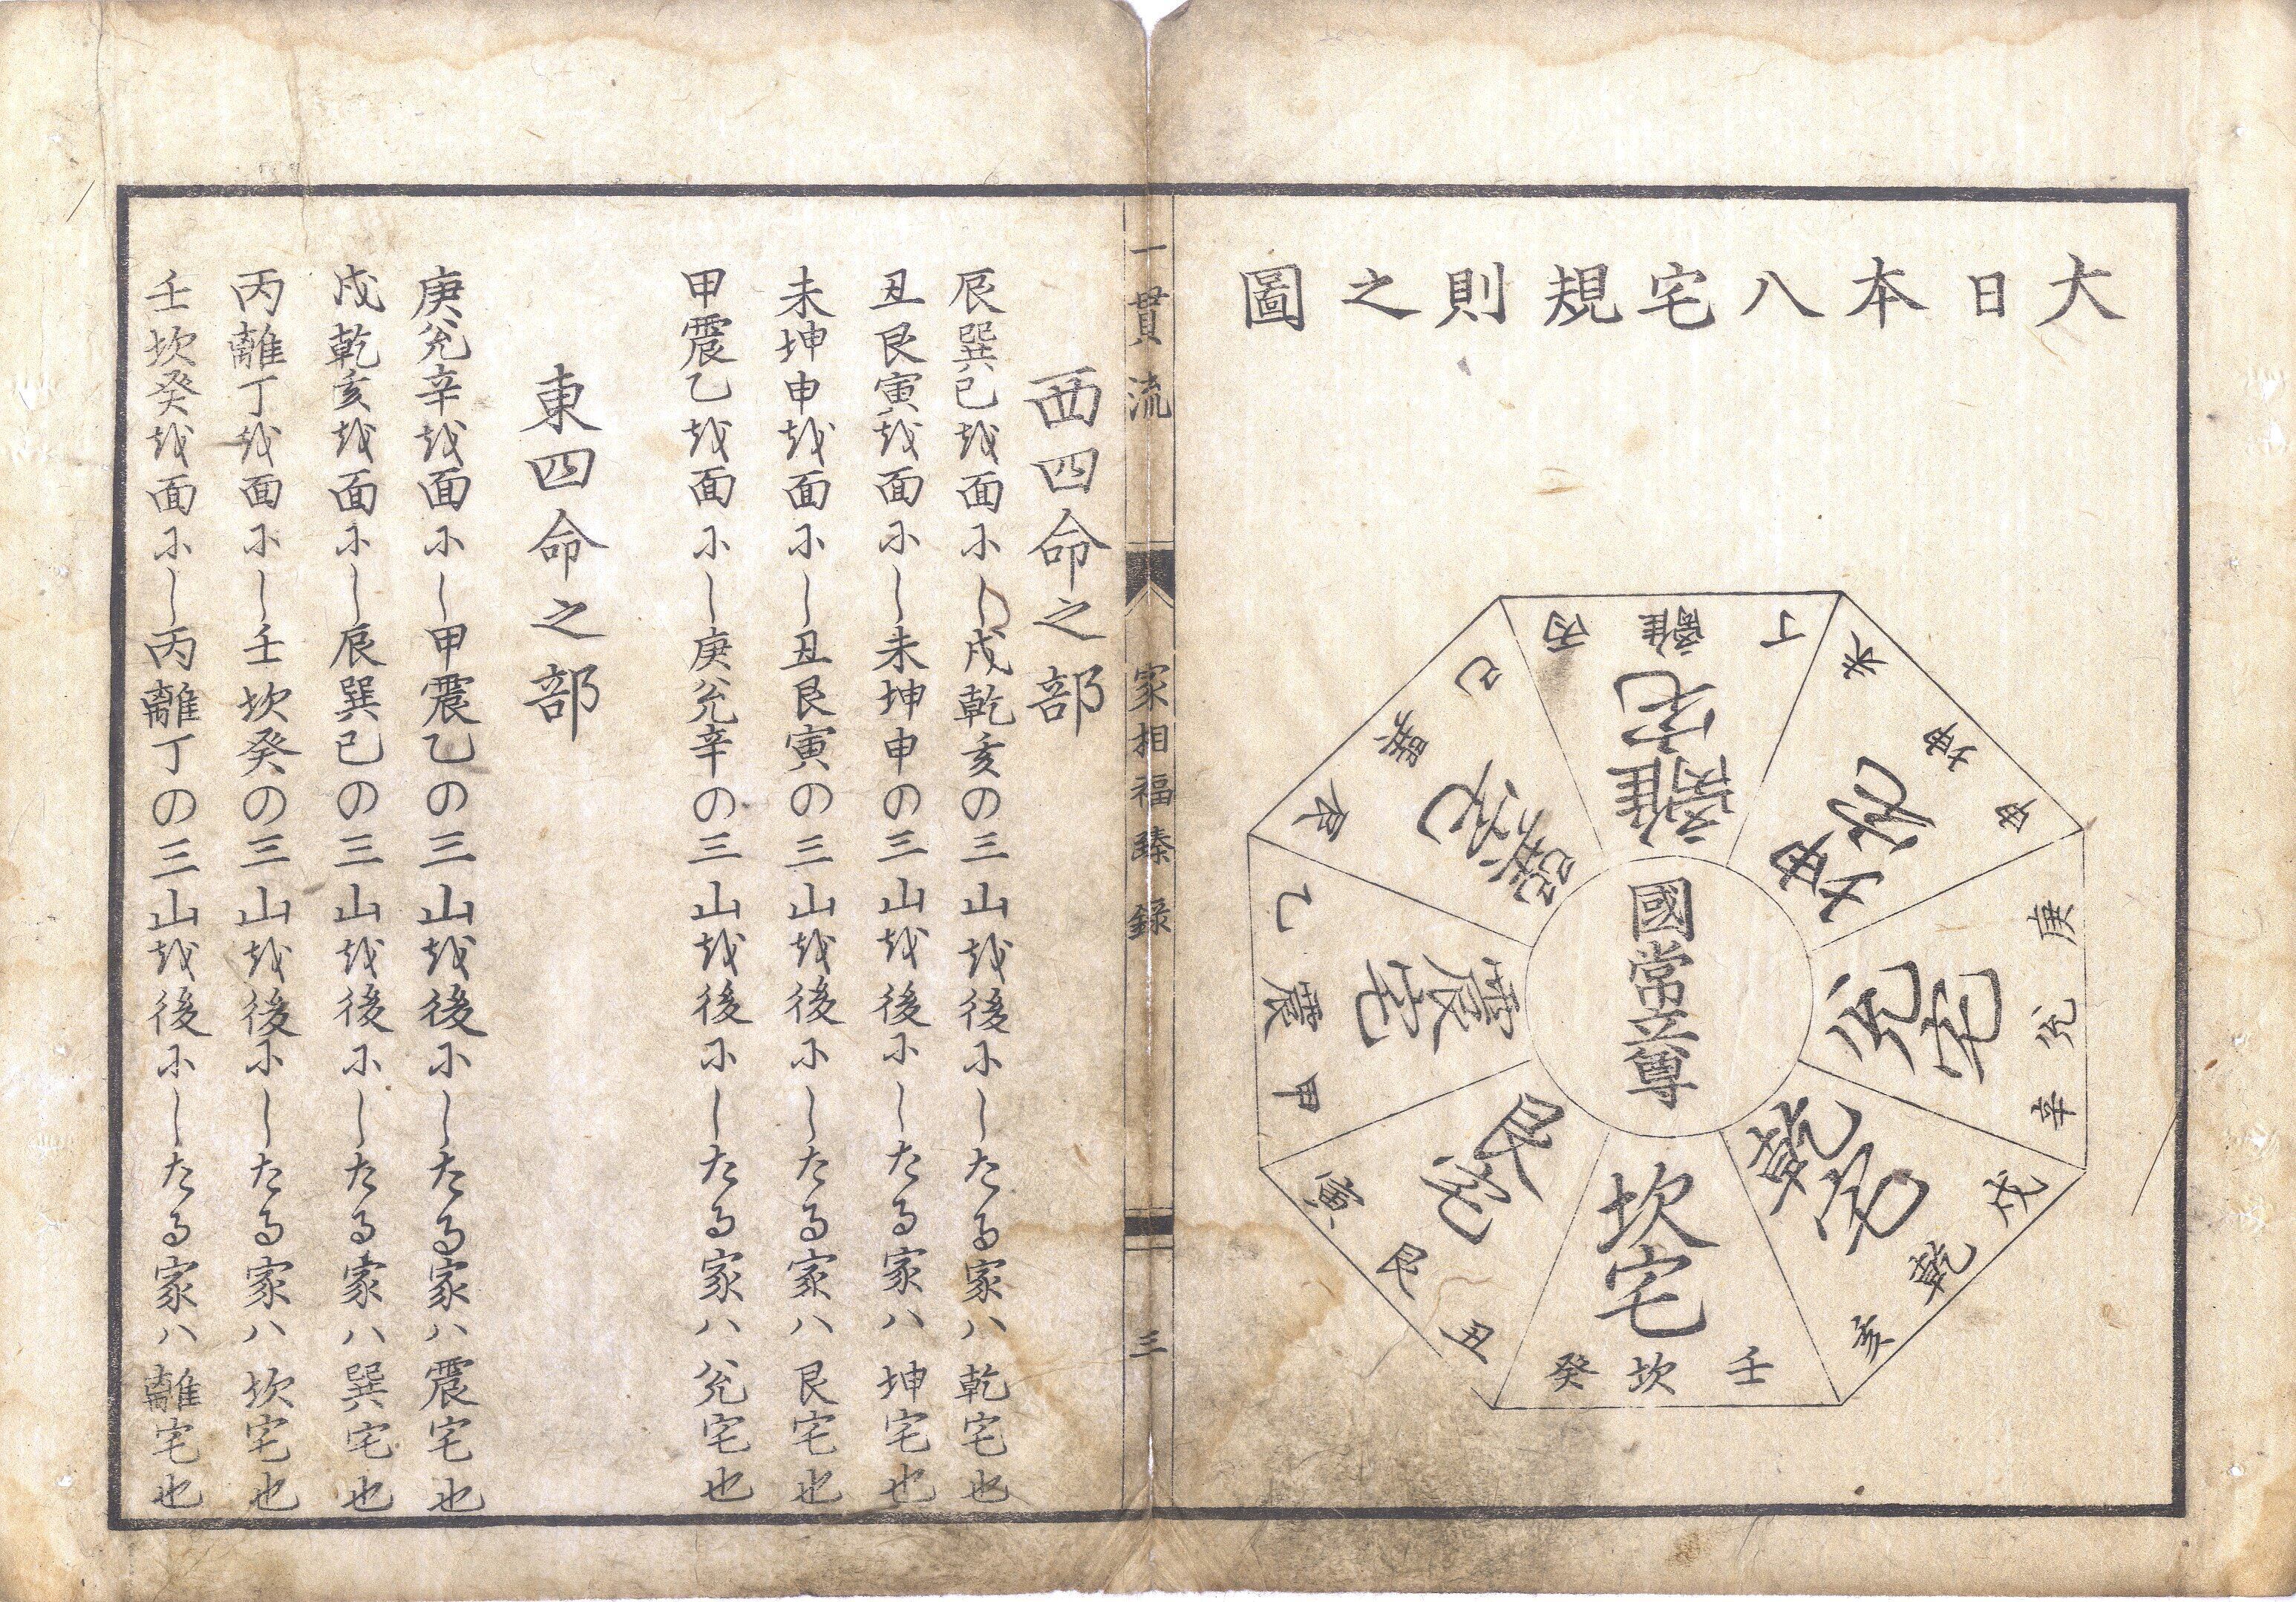 大日本八宅規則之圖
國常立尊
丙離丁
離宅
未坤申
坤宅
庚兌辛
兌宅
戌乾亥
乾宅
壬坎癸
坎宅
丑艮寅
艮宅
甲震乙
震宅
辰巽巳
巽宅
一貫流
家相福臻錄
三
西四命之部
辰巽巳越面尓し戌乾亥の三山越後尓したる家ハ乾宅也
丑艮寅越面尓し未坤申の三山越後尓したる家ハ坤宅也
未坤申越面尓し丑艮寅の三山越後尓したる家ハ艮宅也
甲震乙越面尓し庚兌辛の三山越後尓したる家ハ兌宅也
東四命之部
庚兌辛越面尓し甲震乙の三山越後尓したる家ハ震宅也
戌乾亥越面尓し辰巽巳の三山越後尓したる家ハ巽宅也
丙離丁越面尓し壬坎癸の三山越後尓したる家ハ坎宅也
壬坎癸越面尓し丙離丁の三山越後尓したる家ハ離宅也